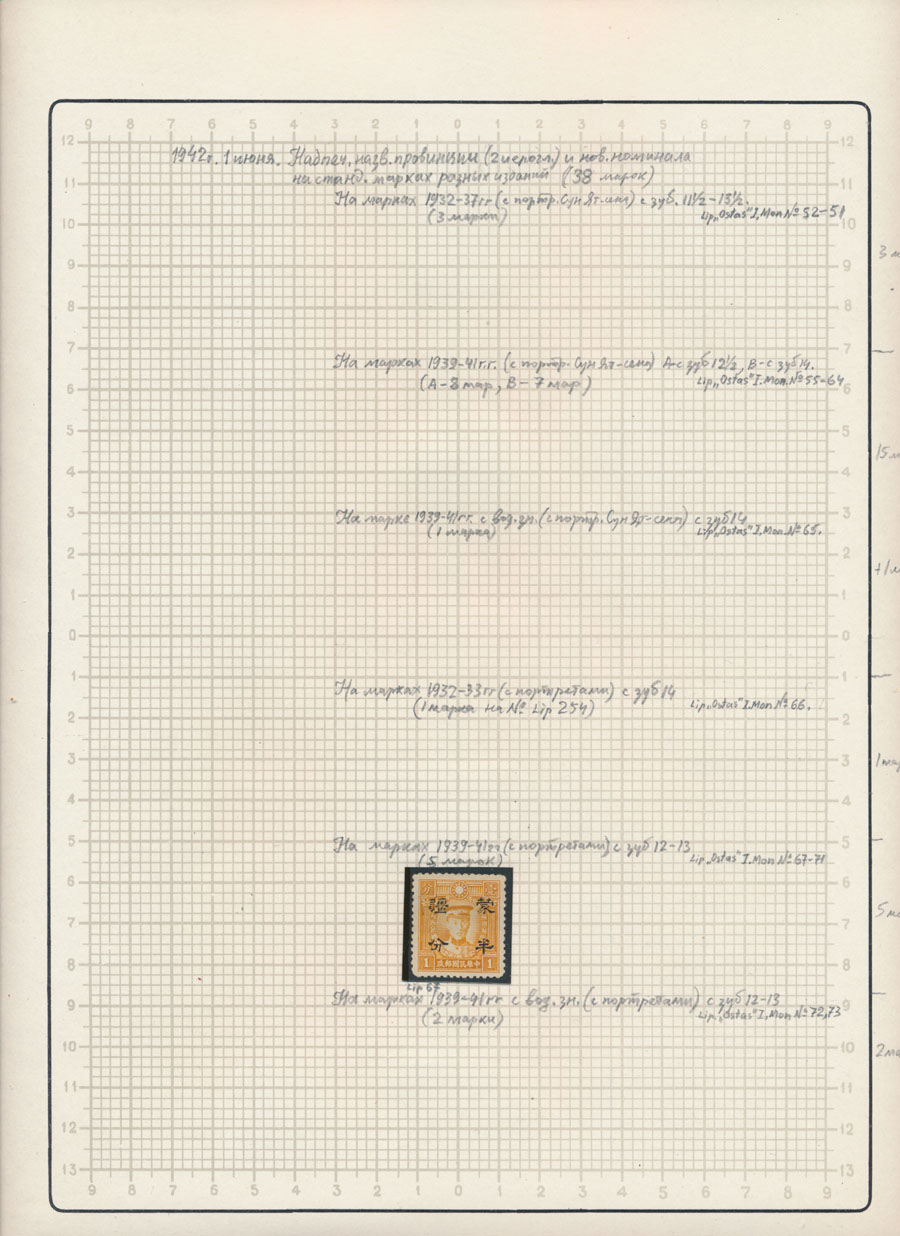 1942г. 1 июня. Надпеч. назв. провинции (2 иерогл.) и нов. номинала
на станд. марках разных изданий (38 марок)
На марках 1932-37гг (с портр. Сун Ят-сена) с зуб. 11½-13½.
(3 марки) Lip „Ostas" I, Mon № 52-51
3 м
На марках 1939-41г.г. (с портр. Сун Ят-сена) А-с зуб 12½, В-с зуб 14.
(А-8 мар, В-7 мар) Lip „Ostas" I. Mon. № 55-64
15 м
На марке 1939-41гг. с вод. зн. (с портр. Сун Ят-сена) с зуб 14
(1 марка) Lip „Ostas" I, Mon. № 65.
+1м
На марках 1932-33гг (с портретами) с зуб 14
(1 марка на № Lip 254) Lip „Ostas" I. Mon № 66.
1 мар
На марках 1939-41гг (с портретами) с зуб 12-13
(5 марок) Lip „Ostas" I. Mon № 67-71
疆 蒙
分 半
1 中華民國郵政 1
5 м
Lip 67
На марках 1939-41гг с вод. зн. (с портретами) с зуб 12-13
(2 марки) Lip „Ostas" I, Mon № 72,73
2 ма
9 8 7 6 5 4 3 2 1 0 1 2 3 4 5 6 7 8 9
12 11 10 9 8 7 6 5 4 3 2 1 0 1 2 3 4 5 6 7 8 9 10 11 12 13
12 11 10 9 8 7 6 5 4 3 2 1 0 1 2 3 4 5 6 7 8 9 10 11 12 13
9 8 7 6 5 4 3 2 1 0 1 2 3 4 5 6 7 8 9